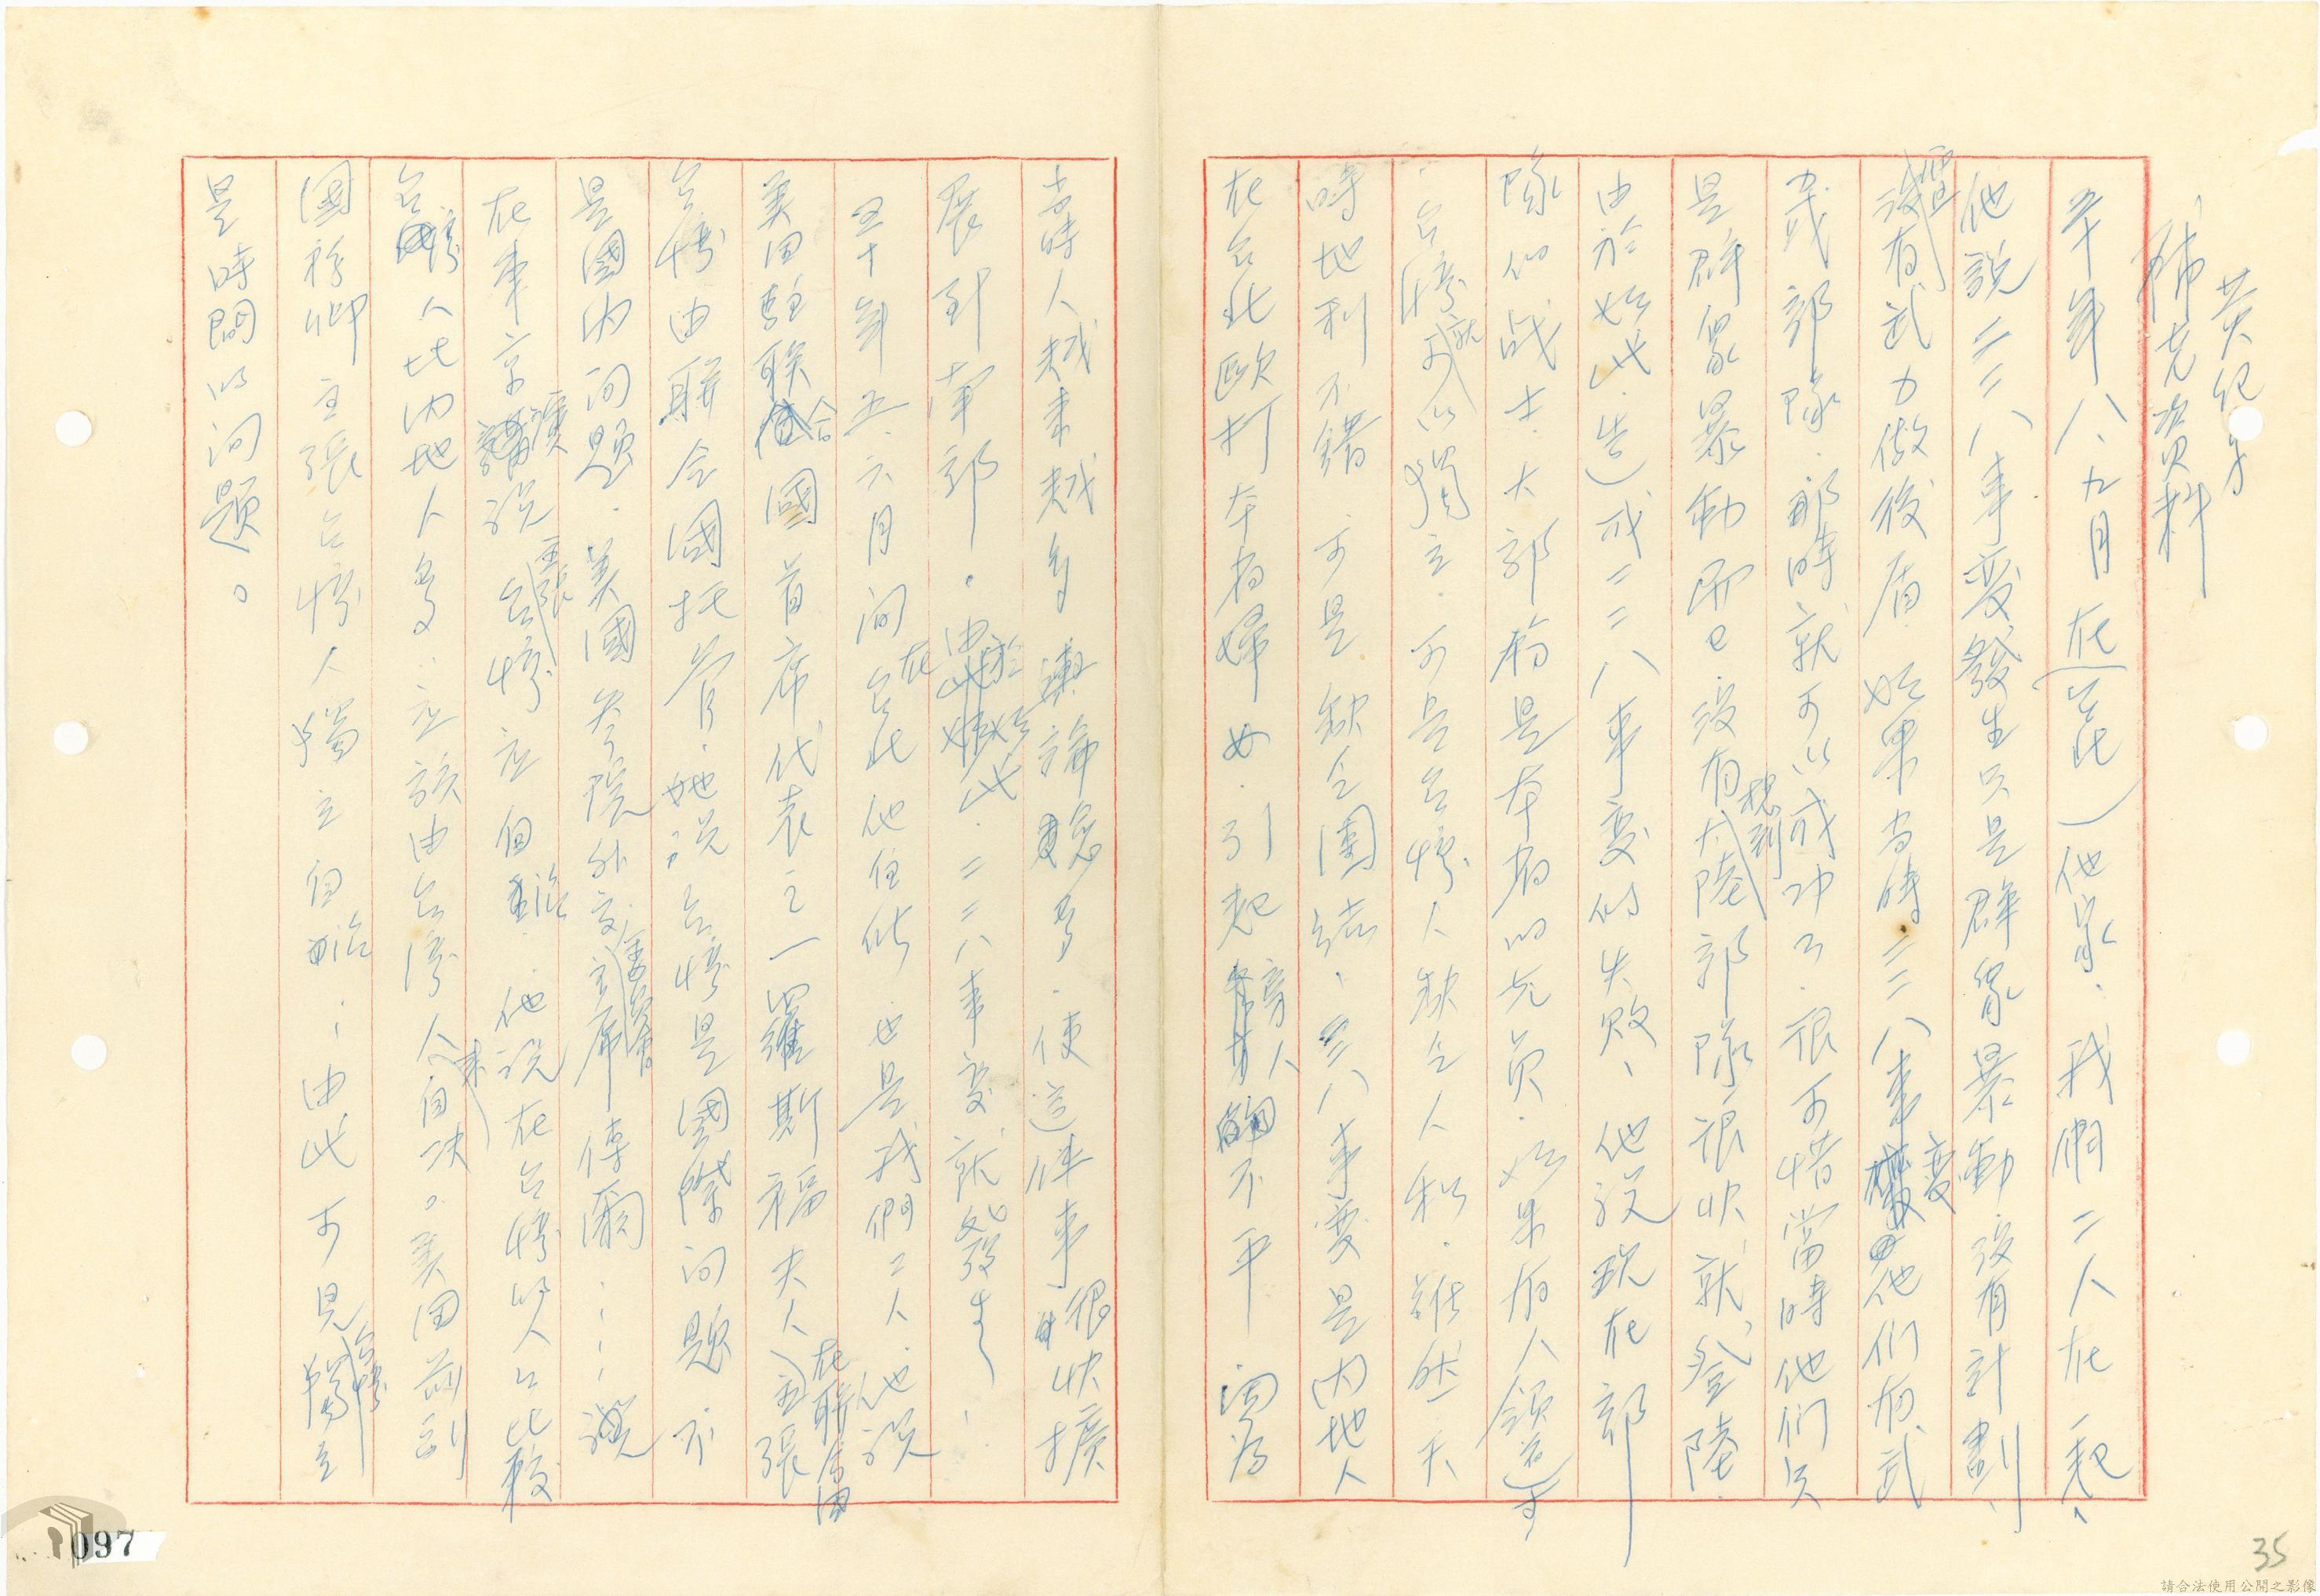 黃紀男
補充資料
五十年八、九月在(台北)他家，我們二人在一起，
他說二二八事變發生只是群眾暴動沒有計劃，
沒有武力做後盾，如果當時二二八事變他们有武
裝部隊，那時就可以成功了，很可惜當時他们只
是群眾暴動而已，沒有想到大陸部隊很快就登陸
由於如此，造成二二八事變的失敗，他說現在部
隊的战士，大部份是本省的充員，如果有人領導，
台灣就可以獨立，可是台灣人缺乏人和，雖然天
時地利不錯，可是缺乏團結，二二八事變是內地人
在台北歐打本省婦女，引起旁人不平，因為
當時人越來越多，輿論愈多，使這件事很快擴
展到南部。由於如此，二二八事變就發生，
五十年五、六月間在台北他住所，也是我們二人，他說
美国駐聯合國首席代表之一羅斯福夫人在聯合国主張
台灣由聯合國托管，她說台灣是國際问題，不
是國內问題，美國參院外交委員會主席傅爾……說
在東京演說主張台灣應自治，他說在台灣的人口比較
台灣人比內地人多，應該由台灣人來自決。美国前副
國務卿主張台灣人獨立自治，由此可見台灣獨立
是時間的问題。
097
35
請合法使用公開之影像